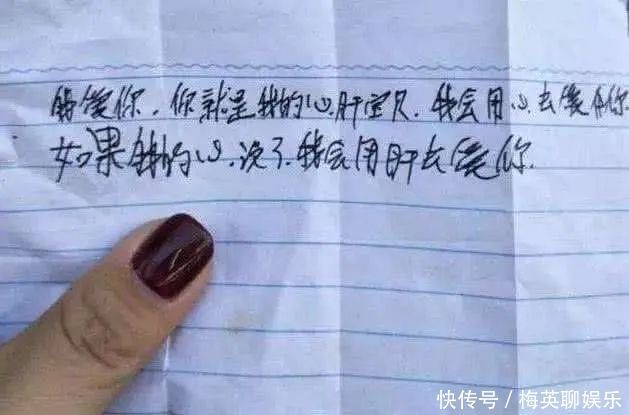 我爱你.你就是我的心肝宝贝.我会用心去爱你
如果我的心.没了我会用肝去爱你.
快传号/梅英聊娱乐